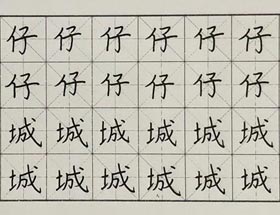 仔仔仔仔仔仔
仔仔仔仔仔仔
城城城城城城
城城城城城城